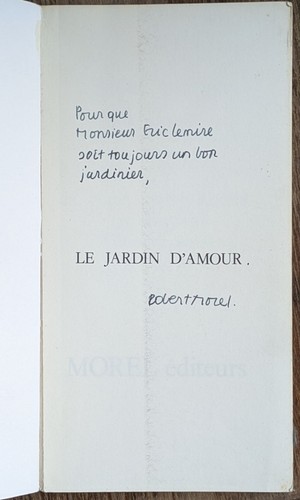 Pour que
Monsieur Eric lemire
soit toujours un bon
jardinier,
LE JARDIN D'AMOUR.
MOREL éditeurs